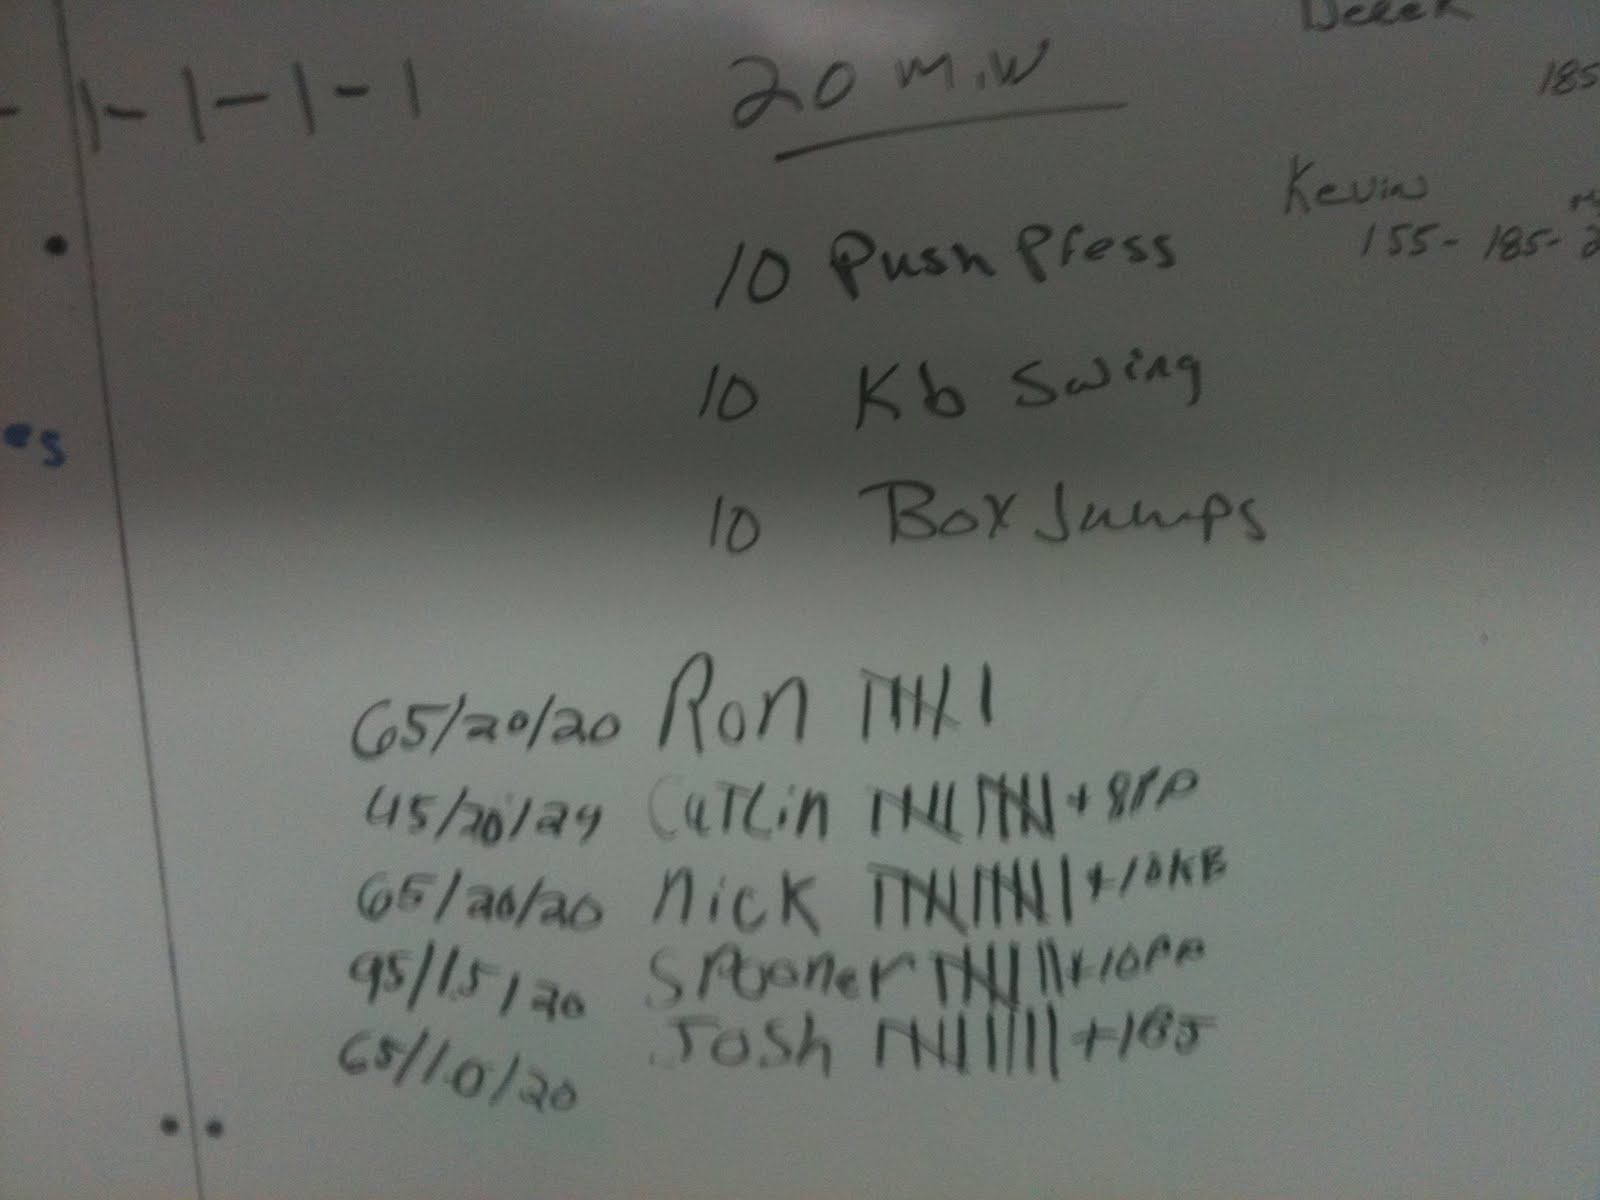 - 1 - 1 - 1 - 1
20 MIN
Derek
185
Kevin
155 - 185 - 2
10 Push Press
10 Kb Swing
es
10 Box Jumps
65/20/20 Ron 𝍸 |
45/20/24 Catlin 𝍸 𝍸 + 8PP
65/20/20 Nick 𝍸 𝍸 | + 10KB
95/15/20 Spooner 𝍸 || + 10PP
65/10/20 Josh 𝍸 |||| + 1BJ